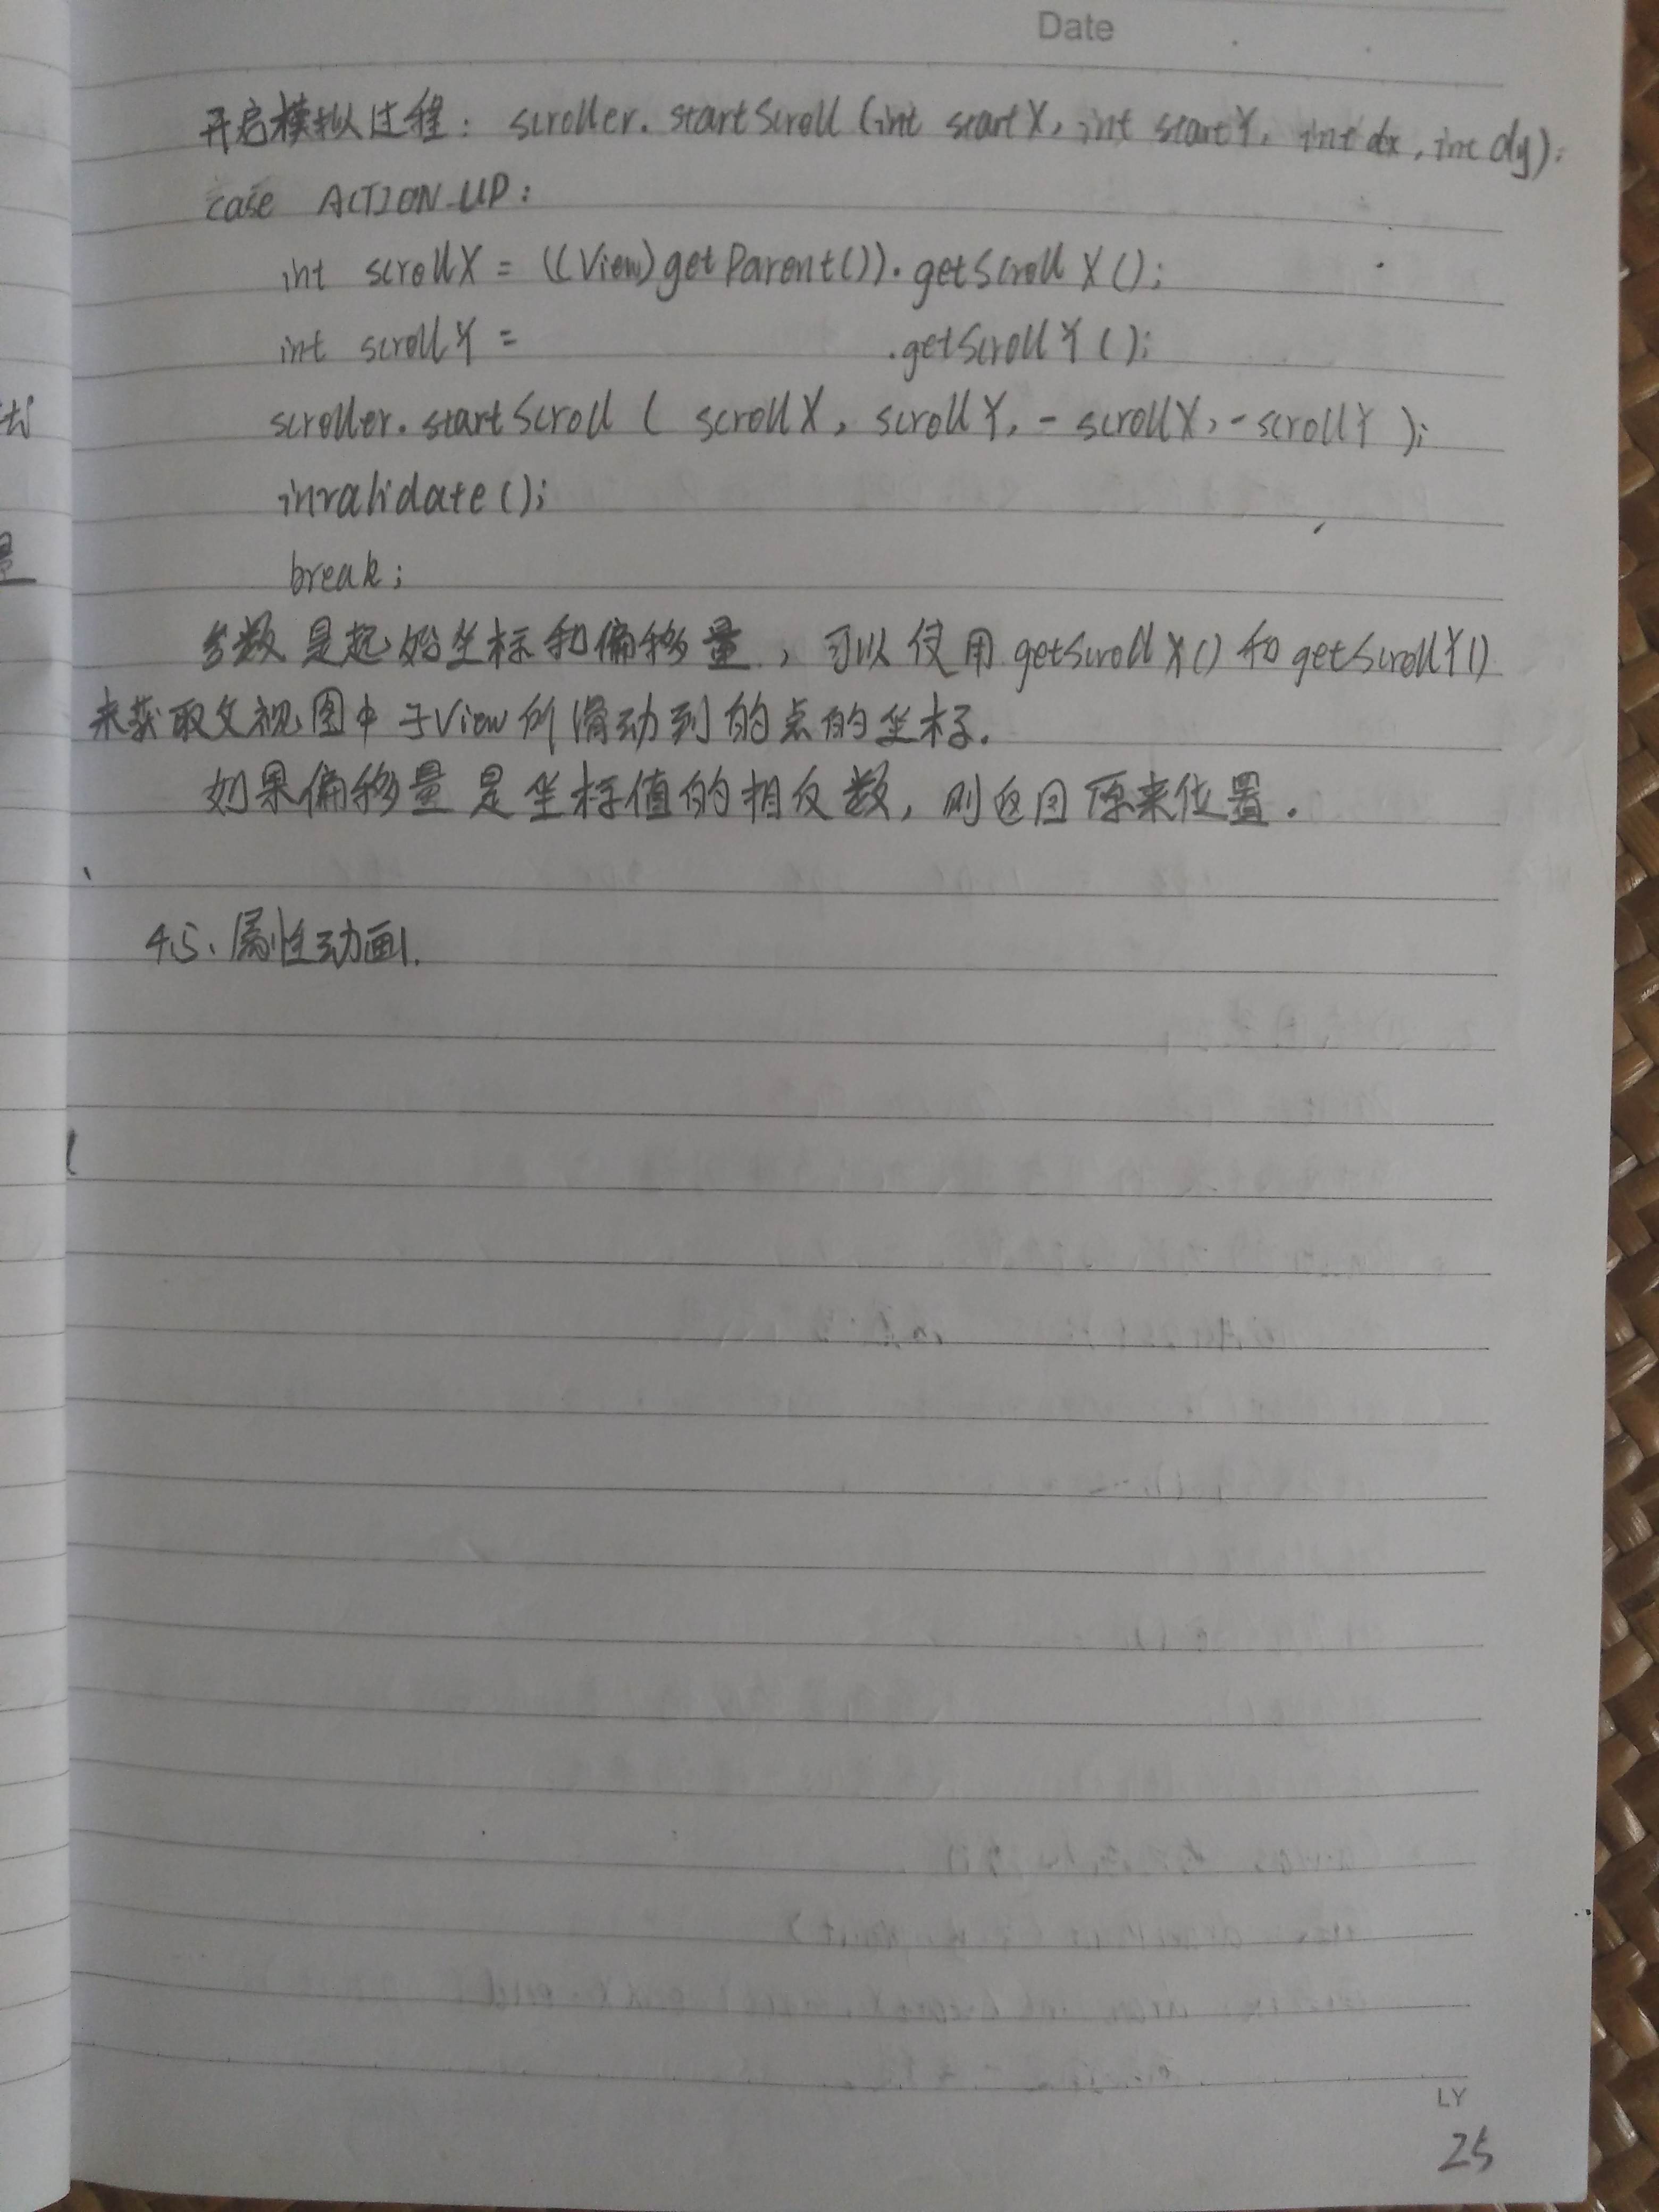 Date
开启模拟过程：scroller.startScroll(int startX, int startY, int dx, int dy);
case ACTION_UP:
int scrollX = ((View)getParent()).getScrollX();
int scrollY = .getScrollY();
scroller.startScroll( scrollX, scrollY, -scrollX, -scrollY );
invalidate();
break;
参数是起始坐标和偏移量，可以使用getScrollX()和getScrollY()
来获取父视图中子View所滑动到的点的坐标.
如果偏移量是坐标值的相反数，则返回原来位置.
4.5、属性动画.
LY
25